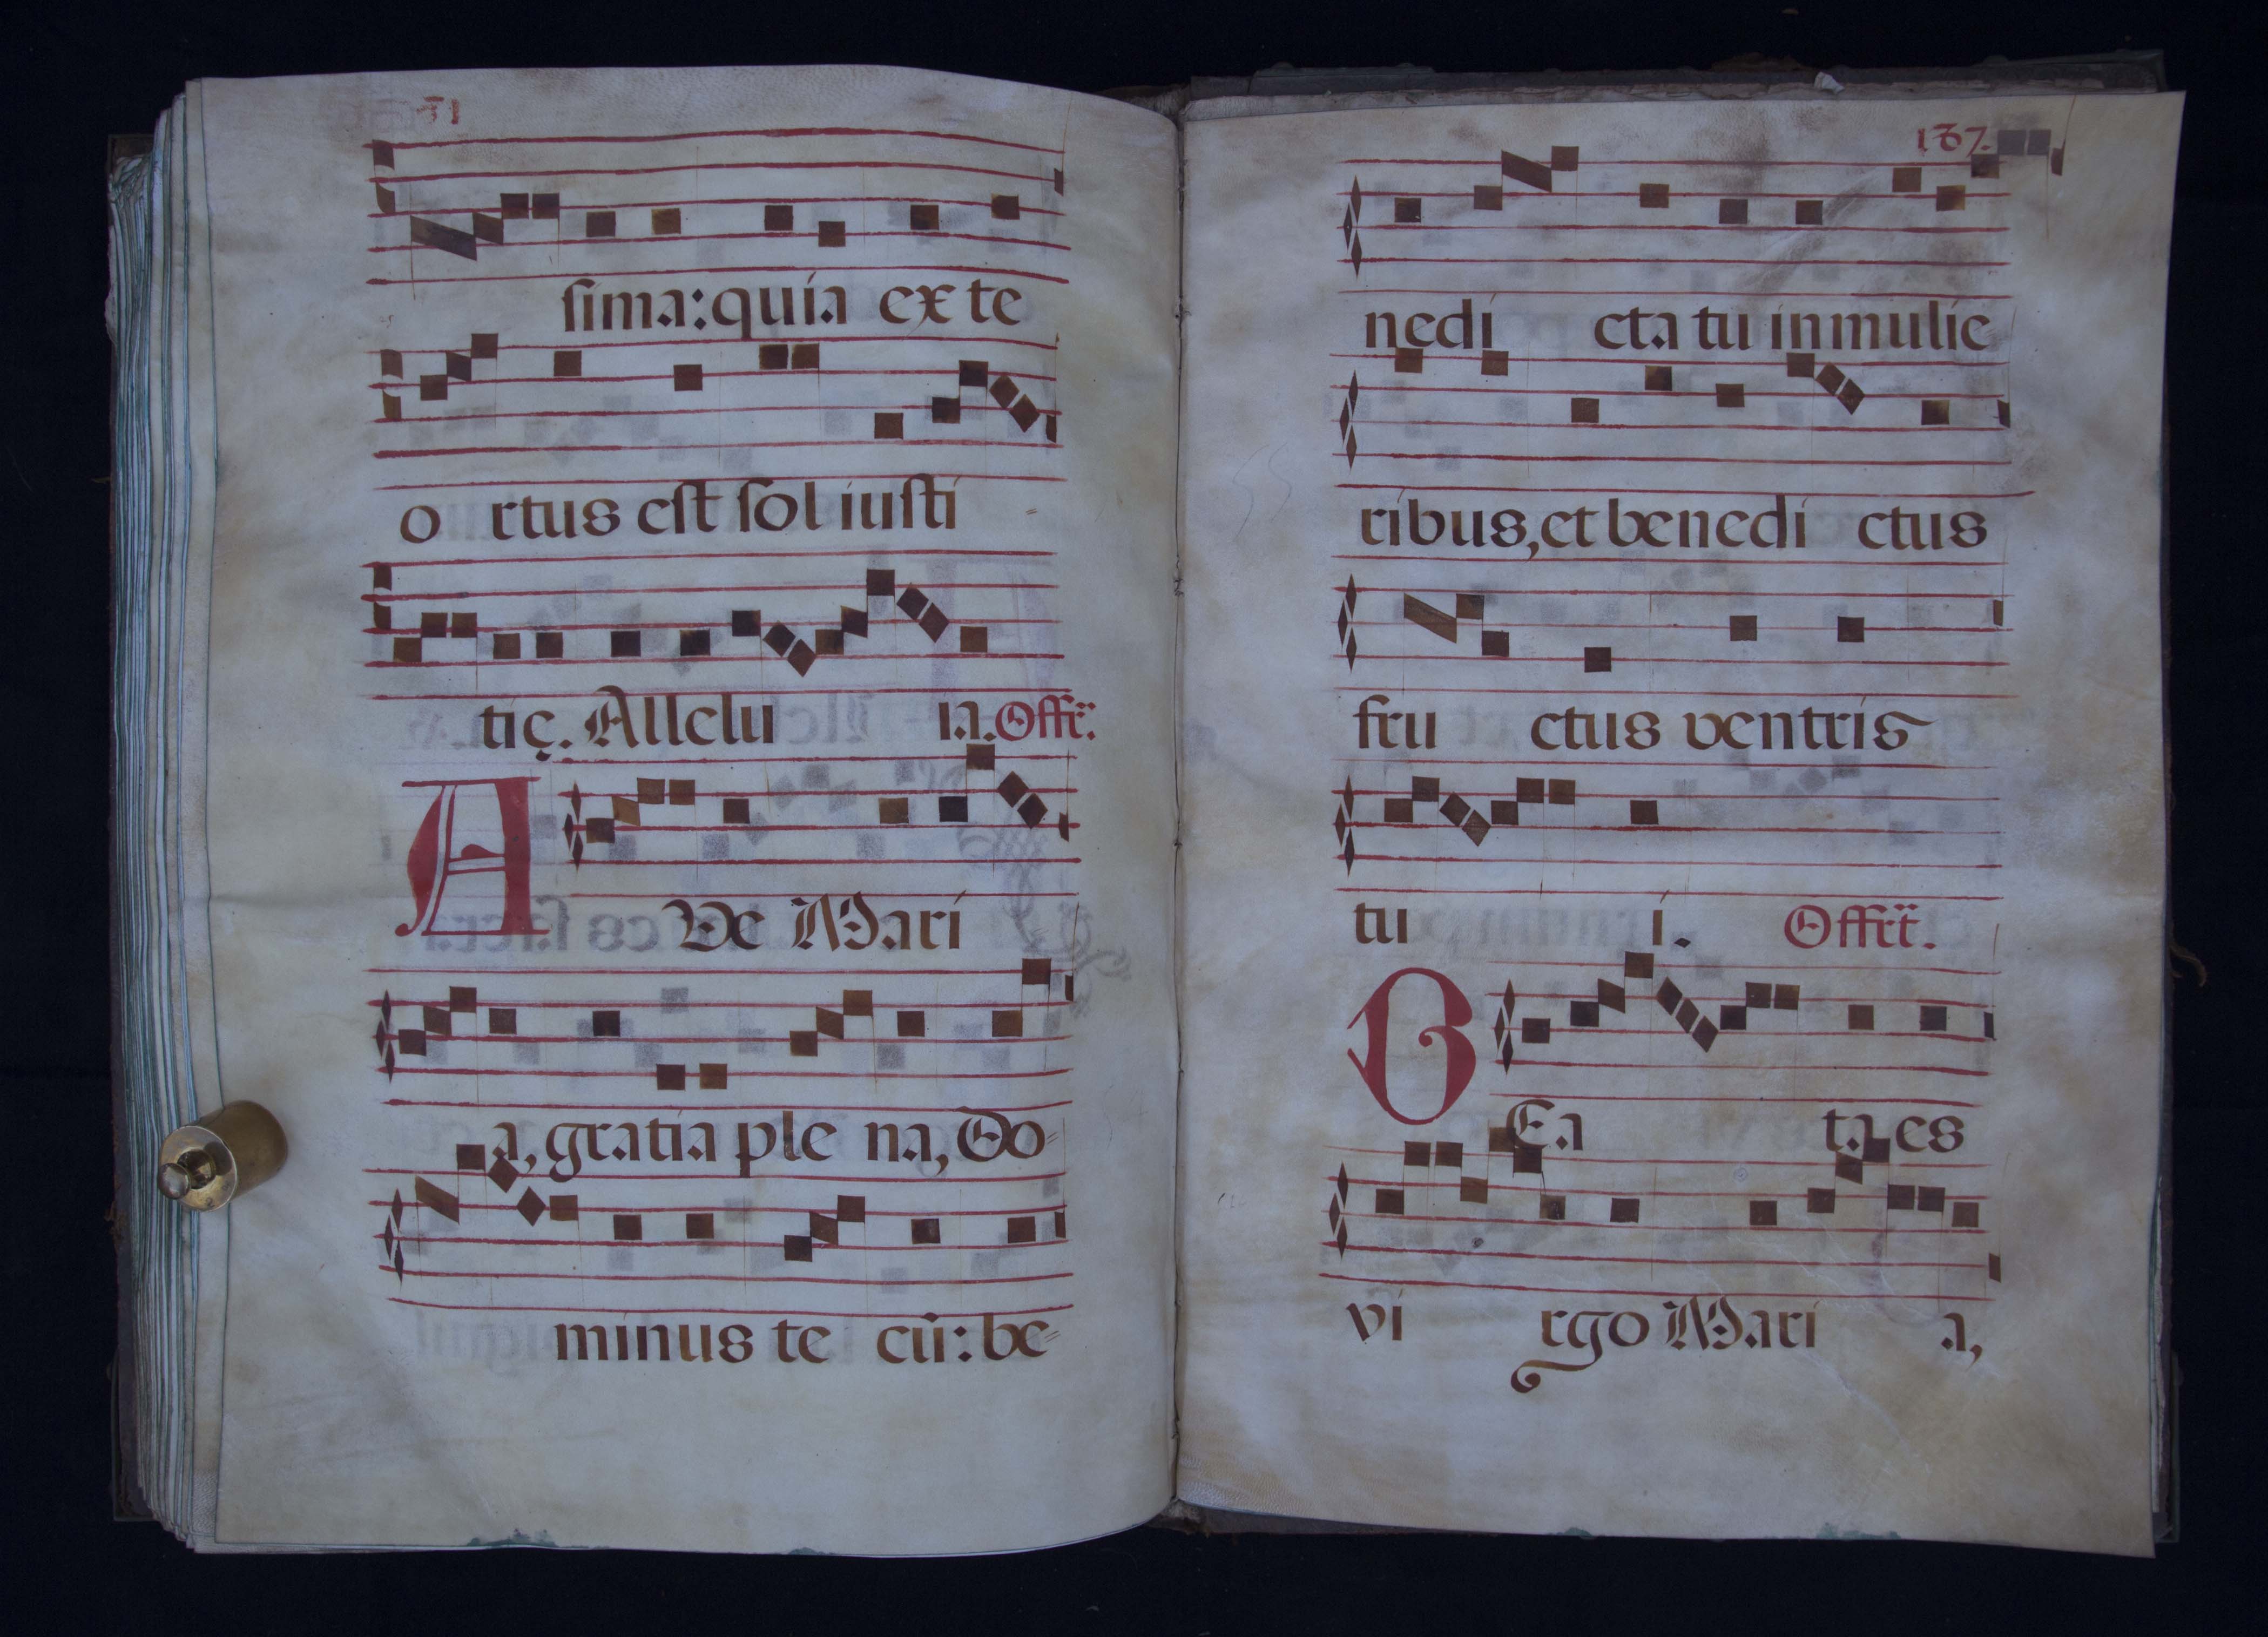 sima:quia ex te
o rtus est sol iusti
tię. Allelu ia. Offr̃.
AVe Mari
a, gratia ple na, Do=
minus te cū: be=
137.
nedi cta tu in mulie
ribus, et benedi ctus
fru ctus ventris
tu i. Offrt̃.
BEa ta es
vi rgo Mari a,